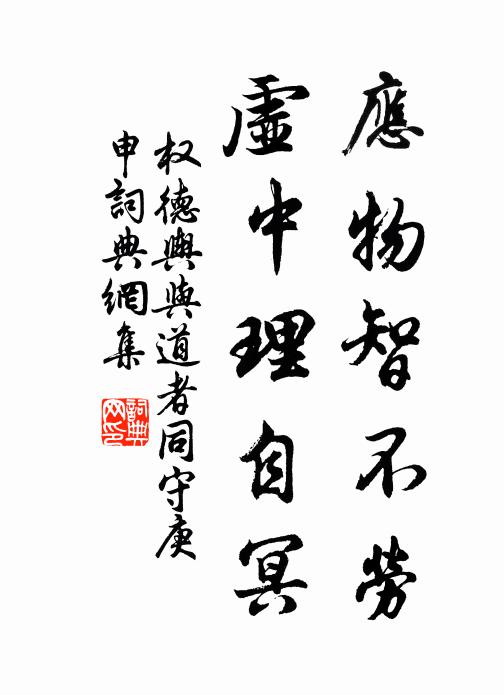 應物智不勞
虛中理自冥
权德輿與道者同守庚
申詞典網集
詞典
网印